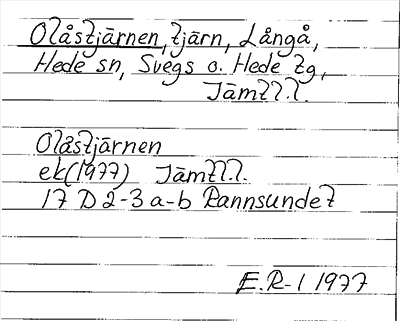 Olåstjärnen, tjärn, Långå,
Hede sn, Svegs o. Hede tg,
Jämtl.l.
Olåstjärnen
ek(1977) Jämtl.l.
17 D 2-3 a-b Rannsundet
E.R-l 1977